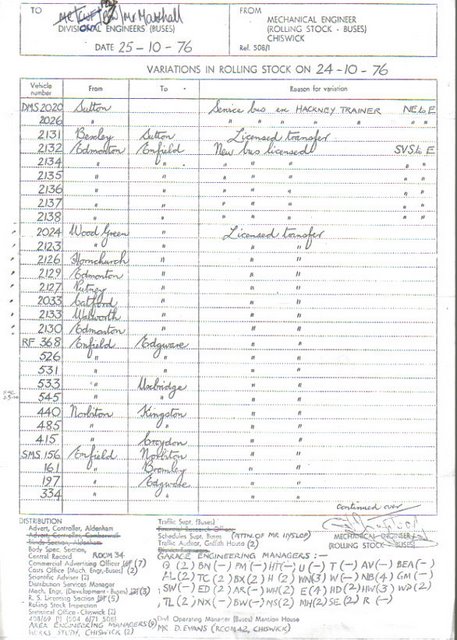 TO Mr Marshall
DIVISIONAL ENGINEERS (BUSES)
DATE 25-10-76
FROM
MECHANICAL ENGINEER
(ROLLING STOCK - BUSES)
CHISWICK
Ref. 508/1
VARIATIONS IN ROLLING STOCK ON 24-10-76
Vehicle number From To Reason for variation
DMS 2020 Sutton Service bus ex HACKNEY TRAINER NE to E
2026 " " " " " " "
2131 Bexley Sutton Licensed transfer
2132 Edmonton Enfield New bus licensed SVS to E
2134 " " " " " " "
2135 " " " " " " "
2136 " " " " " " "
2137 " " " " " " "
2138 " " " " " " "
2024 Wood Green " Licensed transfer
2123 " " " "
2126 Hornchurch " " "
2129 Edmonton " " "
2127 Putney " " "
2033 Catford " " "
2133 Walworth " " "
2130 Edmonton " " "
RF 368 Enfield Edgware " "
526 " " " "
531 " " " "
533 " Uxbridge " "
545 " " " "
440 Norbiton Kingston " "
485 " " " "
415 " Croydon " "
SMS 156 Enfield Norbiton " "
161 " Bromley " "
197 " Edgware " "
334 " " " "
continued over
DISTRIBUTION
Advert. Controller, Aldenham
Body Spec. Section,
Central Record ROOM 34
Commercial Advertising Officer (7)
Costs Office (Mech. Eng.-Buses) (2)
Scientific Adviser (2)
Distribution Services Manager
Mech. Engr. (Development - Buses) (3)
R. S. Licensing Section (5)
Rolling Stock Inspection
Technical Office, Chiswick (2)
AREA ENGINEERING MANAGERS
WORKS STUDY, CHISWICK (2)
Traffic Supt. (Buses)
Schedules Supt. Buses (ATTN OF MR HYSLOP)
Traffic Auditor, Griffith House (2)
GARAGE ENGINEERING MANAGERS :-
Chief Operating Manager (Buses) Mantion House
MR D. EVANS (ROOM A2, CHISWICK)
MECHANICAL ENGINEER
(ROLLING STOCK - BUSES)